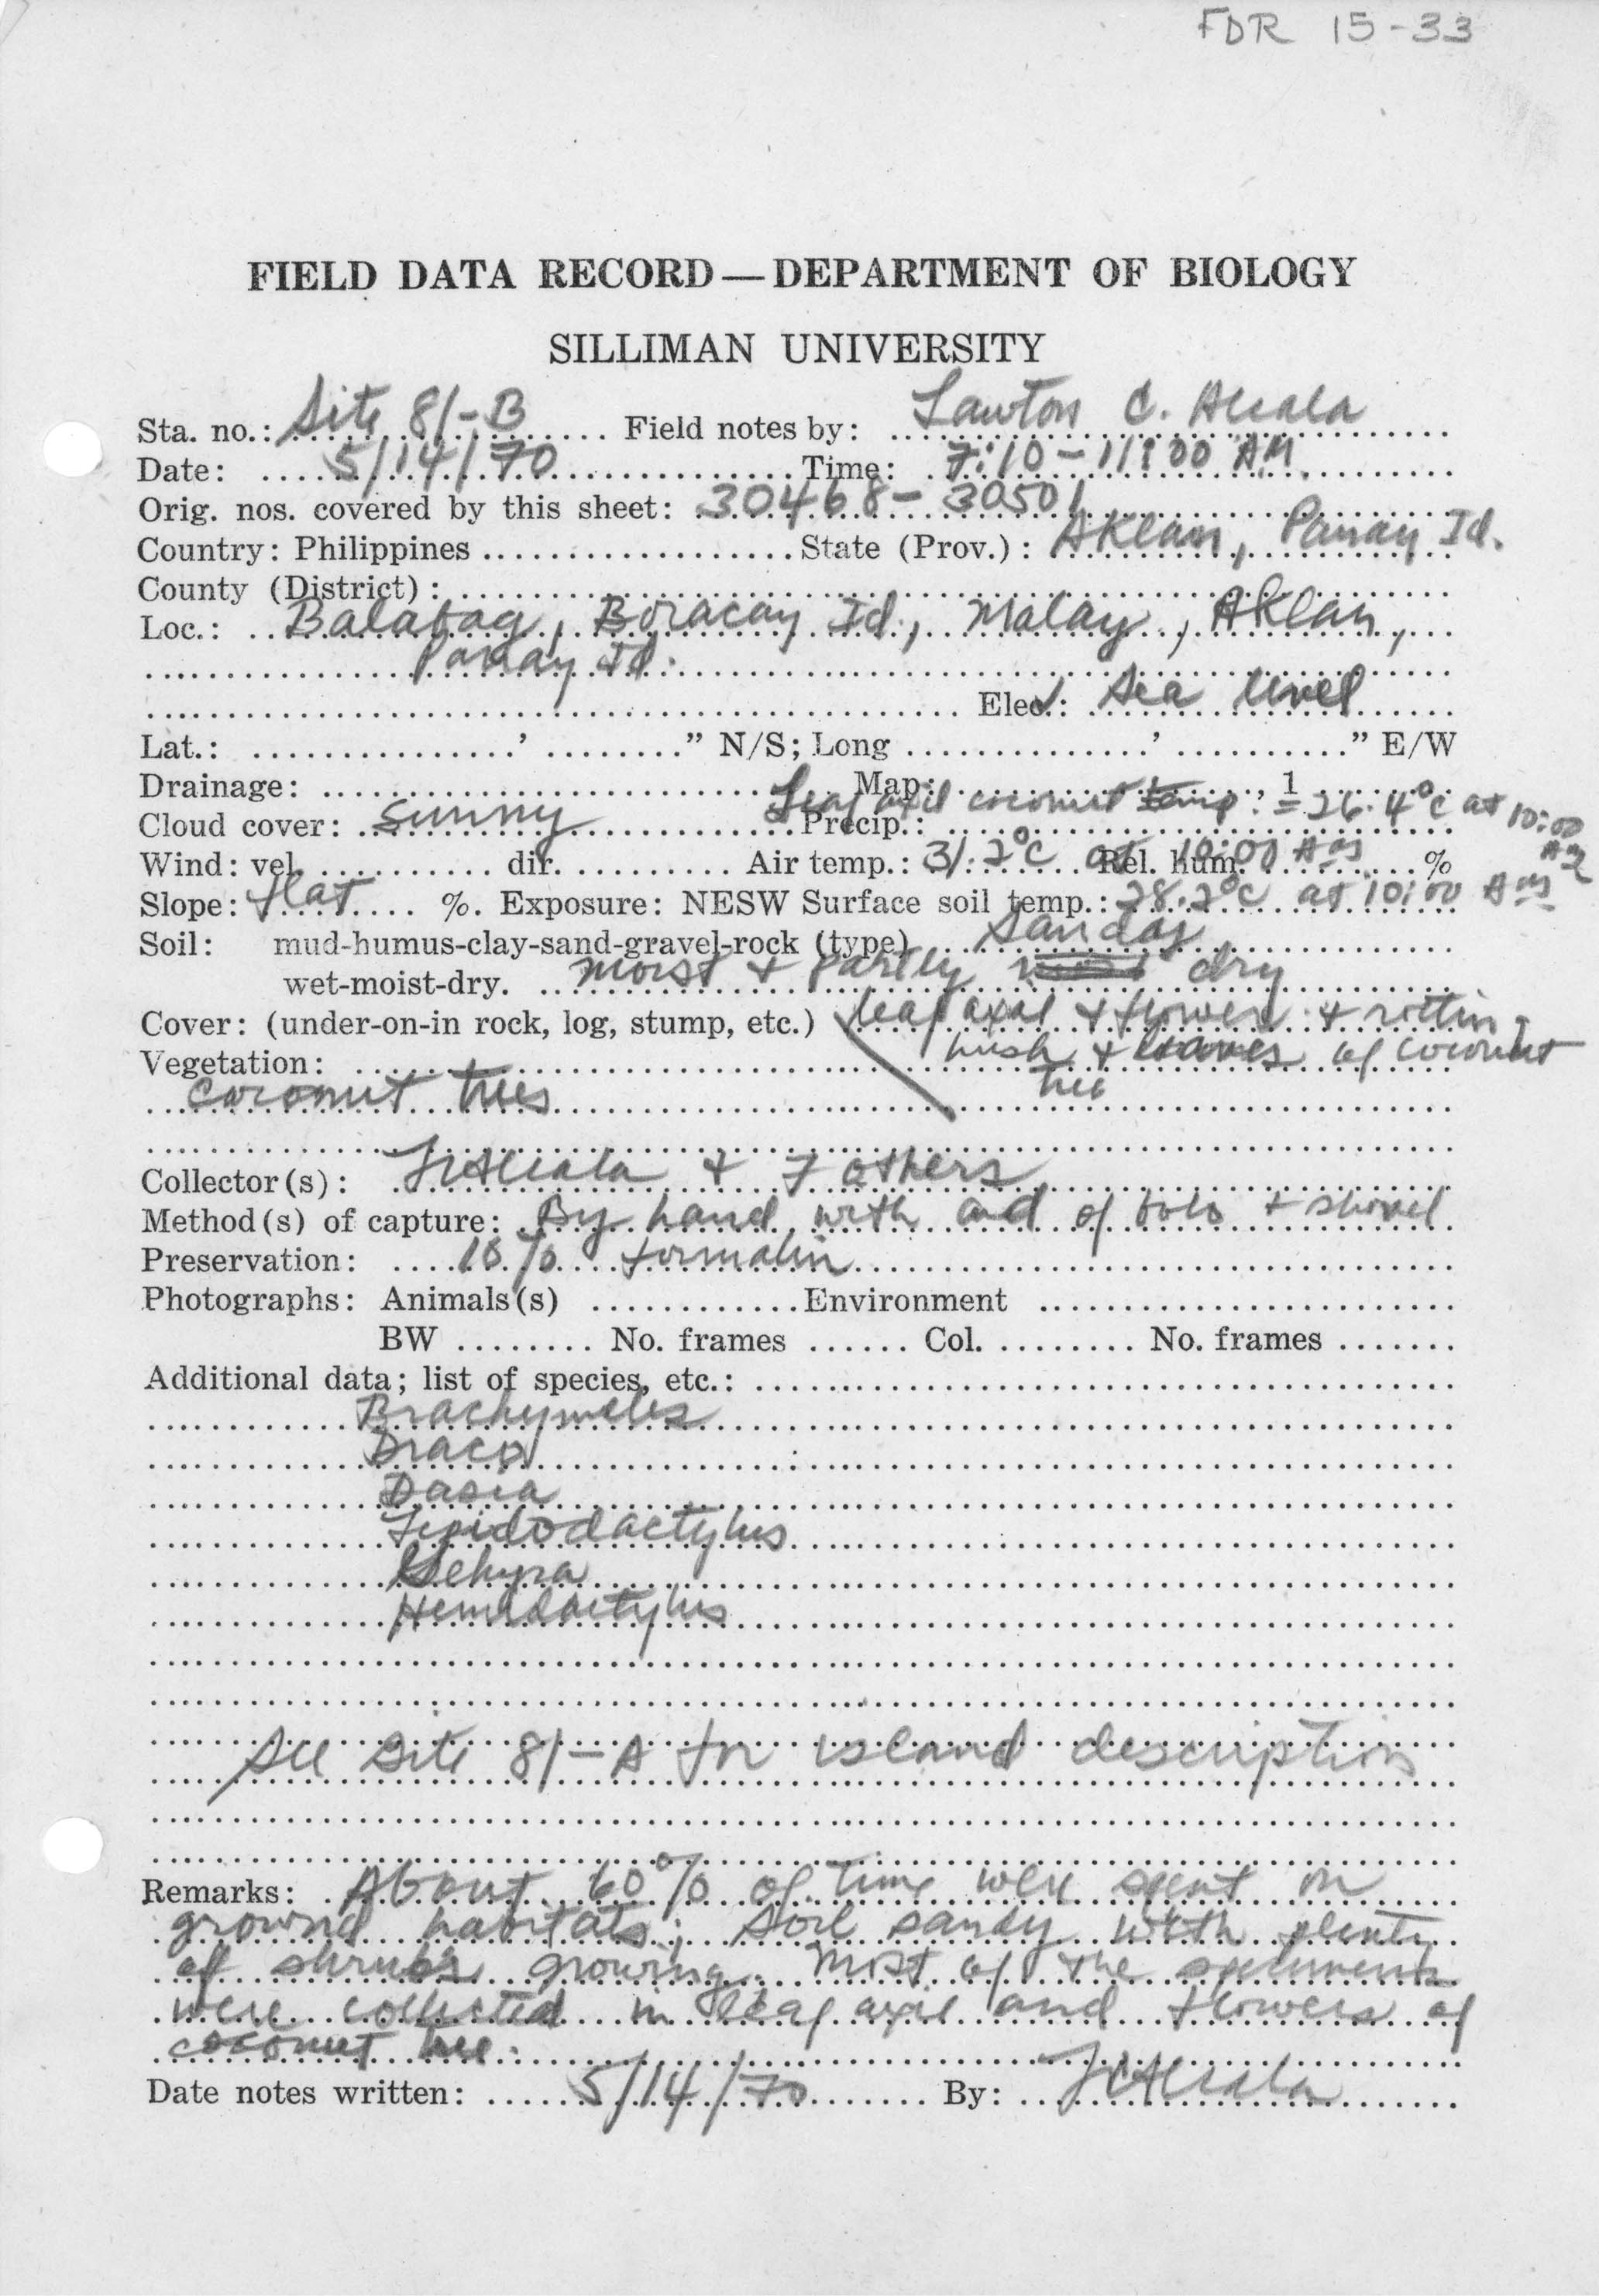 FDR 15-33
FIELD DATA RECORD — DEPARTMENT OF BIOLOGY
SILLIMAN UNIVERSITY
Sta. no.: Site 81-B Field notes by: Lawton C. Alcala
Date: 5/14/70 Time: 7:10 - 11:00 AM.
Orig. nos. covered by this sheet: 30468 - 30501
Country: Philippines State (Prov.): Aklan, Panay Id.
County (District):
Loc.: Balabag, Boracay Id., Malay, Aklan,
Panay Id.
Elev.: Sea level
Lat.: ' " N/S; Long ' " E/W
Drainage: Map: , 1
Leaf axil coconut temp. = 26.4°C at 10:00 AM
Cloud cover: sunny Precip.:
Wind: vel. dir. Air temp.: 31.2°C at 10:00 AM Rel. hum. %
Slope: flat %. Exposure: NESW Surface soil temp.: 28.2°C at 10:00 AM
Soil: mud-humus-clay-sand-gravel-rock (type) Sanday
wet-moist-dry. moist & partly dry
Cover: (under-on-in rock, log, stump, etc.) leaf axal & flower & rotting
husk & leaves of coconut
tree
Vegetation:
coconut trees
Collector(s): LCAlcala & 7 others
Method(s) of capture: By hand with aid of bolo & shovel
Preservation: 10% formalin
Photographs: Animals(s) Environment
BW No. frames Col. No. frames
Additional data; list of species, etc.:
Brachymeles
Draco
Dasia
Lepidodactylus
Gehyra
Hemidactylus
See Site 81-A for island description
Remarks: About 60% of time were spent on
ground habitats; soil sandy with plenty
of shrubs growing. Most of the specimens
were collected in leaf axil and flowers of
coconut tree.
Date notes written: 5/14/70 By: LCAlcala